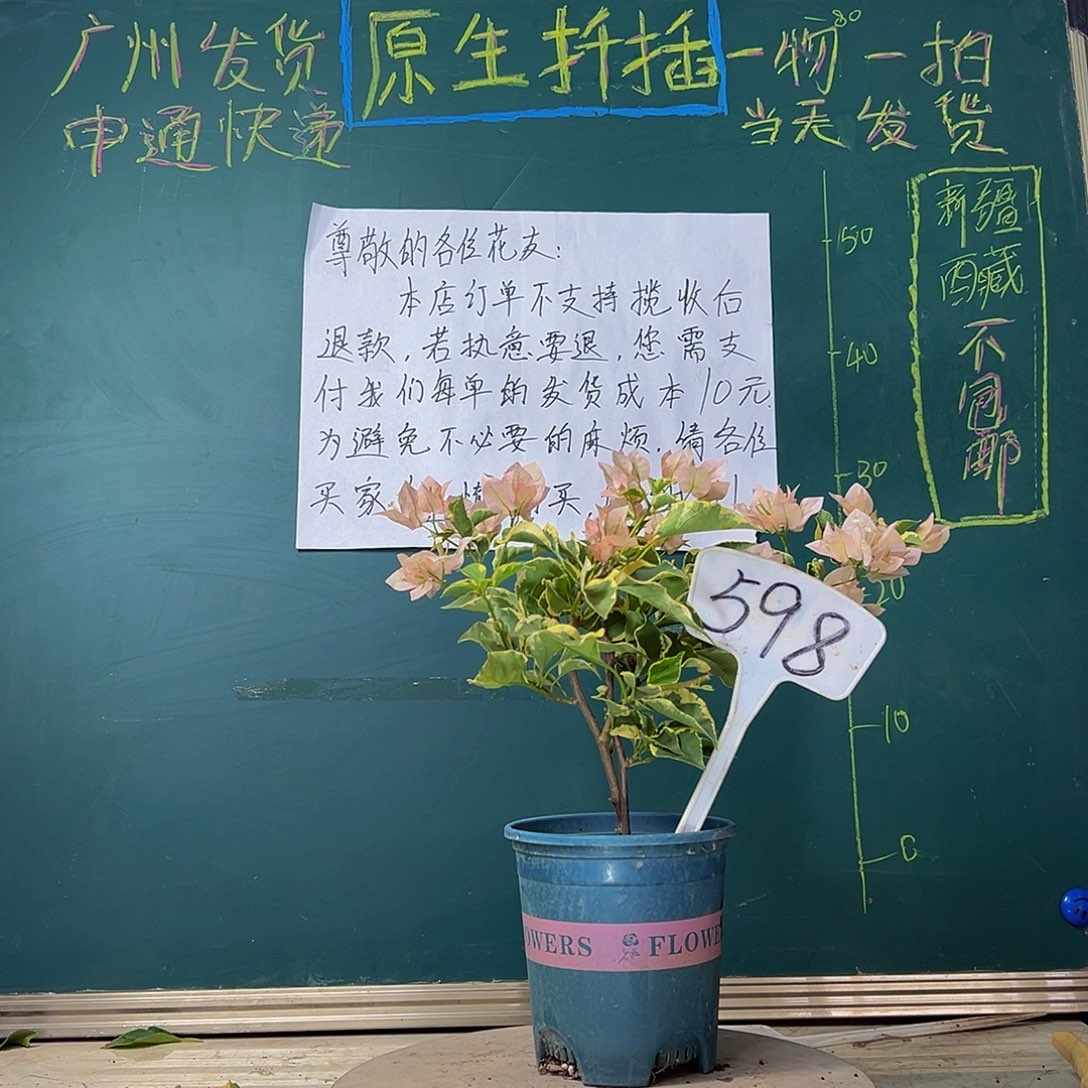 广州发货
申通快递
原生扦插
一物一拍
当天发货
新疆
西藏
不包邮
尊敬的各位花友:
本店订单不支持揽收后
退款,若执意要退,您需支
付我们每单的发货成本10元.
为避免不必要的麻烦,请各位
买家 买,
50
40
30
20
10
0
598
OWERS FLOWE